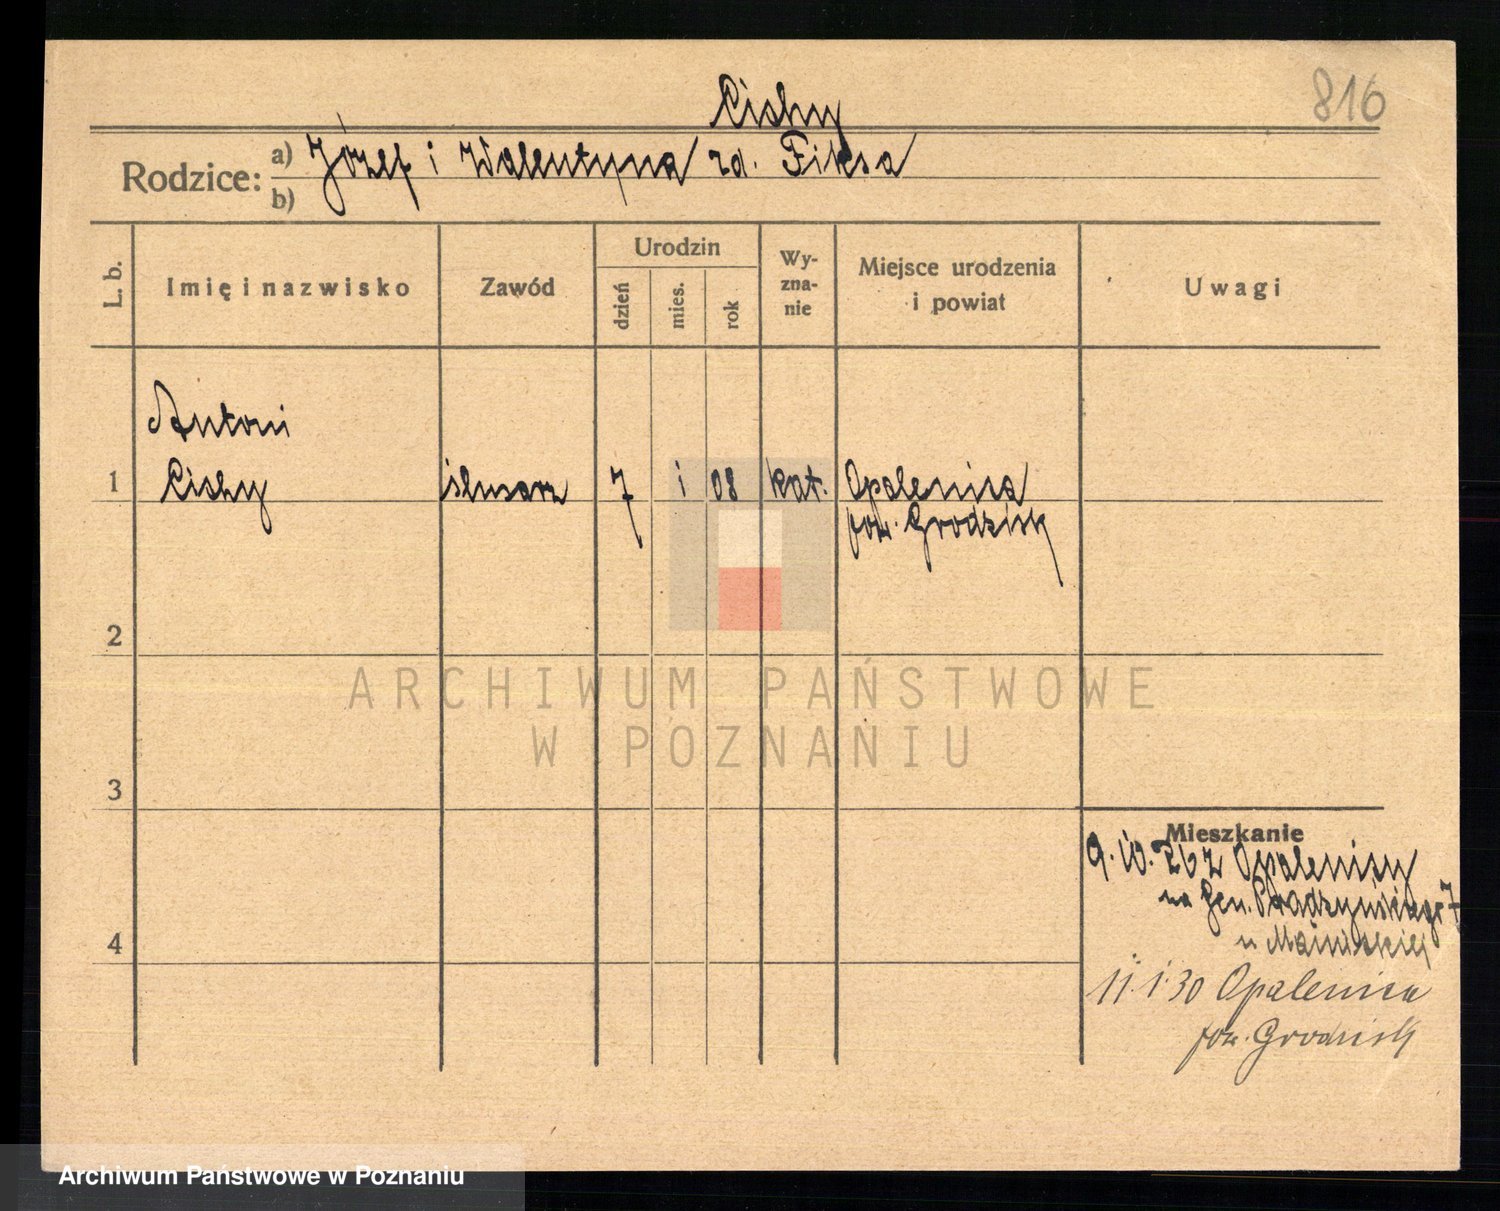 816
Cichy
Rodzice: a) Józef i Walentyna zd. Fiksa
b)
L. b.
Imię i nazwisko
Zawód
Urodzin
dzień
mies.
rok
Wy-
zna-
nie
Miejsce urodzenia
i powiat
Uwagi
Antoni
1 Cichy ślusarz 7 i 08 kat. Opalenica
pow. Grodzisk
2
ARCHIWUM PAŃSTWOWE
W POZNANIU
3
Mieszkanie
9. 10. 26 z Opalenicy
na Gen. Prądzyńskiego 7
u
4
11. 1. 30 Opalenica
pow. Grodzisk
Archiwum Państwowe w Poznaniu